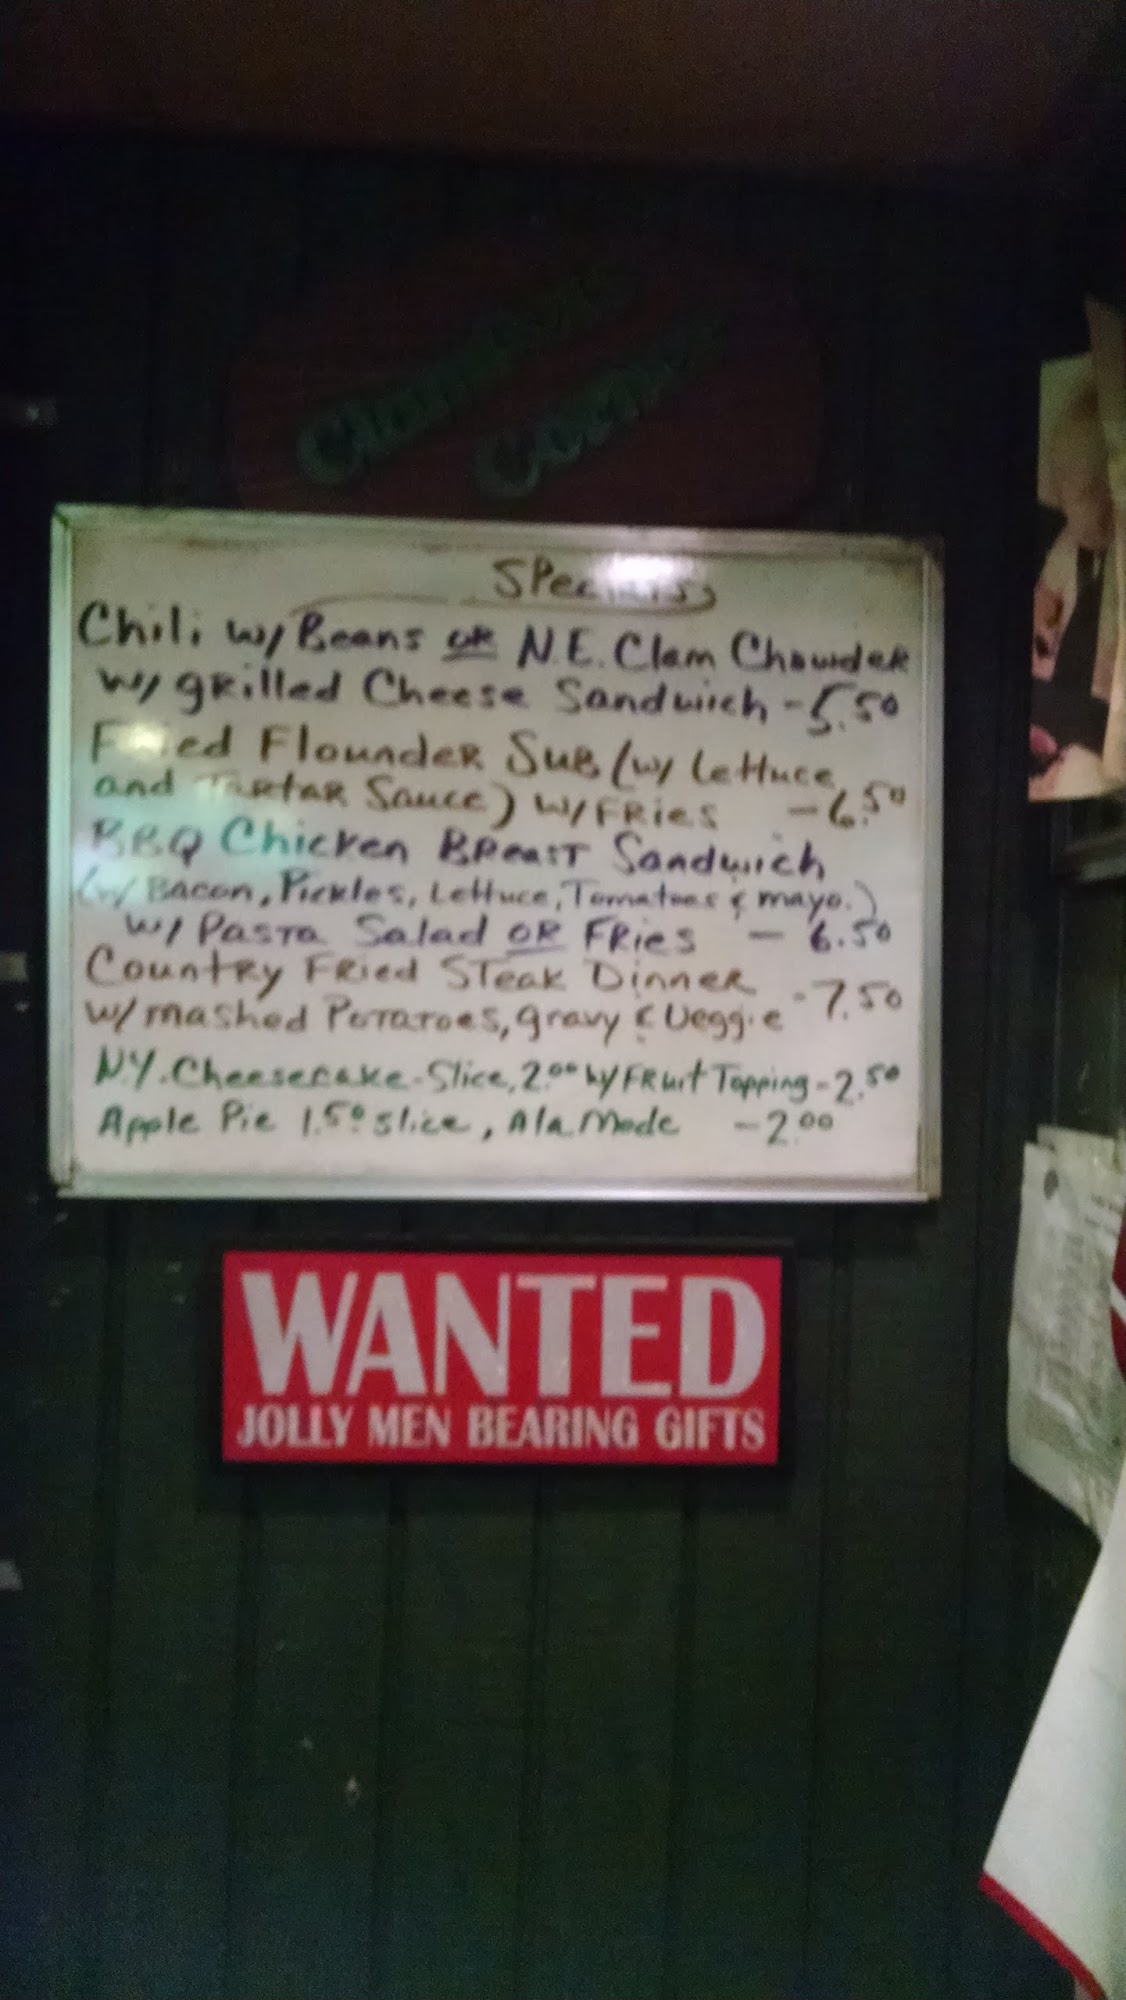 Specials
Chili w/ Beans OR N.E. Clam Chowder
w/ grilled Cheese Sandwich - 5.50
Fried Flounder Sub (w/ Lettuce
and Tartar Sauce) w/ FRies - 6.50
BBQ Chicken Breast Sandwich
(w/ Bacon, Pickles, Lettuce, Tomatoes & mayo.)
w/ Pasta Salad OR FRies - 6.50
Country Fried Steak Dinner
w/ mashed Potatoes, gravy & Veggie - 7.50
N.Y. Cheesecake-Slice, 2.00 w/ FRuit Topping - 2.50
Apple Pie 1.50 slice, Ala Mode - 2.00
WANTED
JOLLY MEN BEARING GIFTS